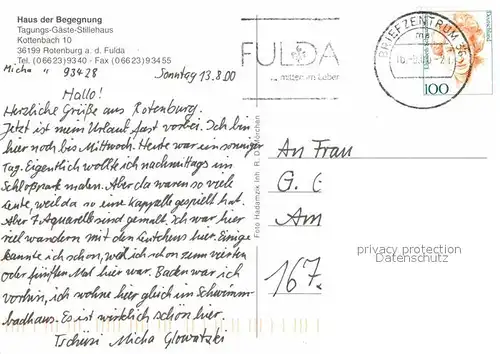 Haus der Begegnung
Tagungs-Gäste-Stillehaus
Kottenbach 10
36199 Rotenburg a. d. Fulda
Tel. (0 66 23) 93 40 · Fax (0 66 23) 93 4 55
Micha " 93428
Sonntag 13.8.00
Hallo!
Herzliche Grüße aus Rotenburg.
Jetzt ist mein Urlaub fast vorbei. Ich bin
hier noch bis Mittwoch. Heute war ein sonniger
Tag. Eigentlich wollte ich nachmittags im
Schloßpark malen. Aber da waren so viele
Leute, weil da so eine Kappelle gespielt hat.
Aber 7 Aquarelle sind gemalt. Ich war hier
viel wandern mit den Leutchens hier. Einige
kannte ich schon, weil ich schon zum vierten
oder fünften Mal hier war. Baden war ich
vorhin, ich wohne hier gleich im Schwimm-
badhaus. Es ist wirklich schön hier.
Tschüsi Micha Glowatzki
Foto Hadamzik Inh. R. D. Morschen
FULDA
mitten im Leben
BRIEFZENTRUM 36
100
An Frau
G.
Am
167
privacy protection
Datenschutz